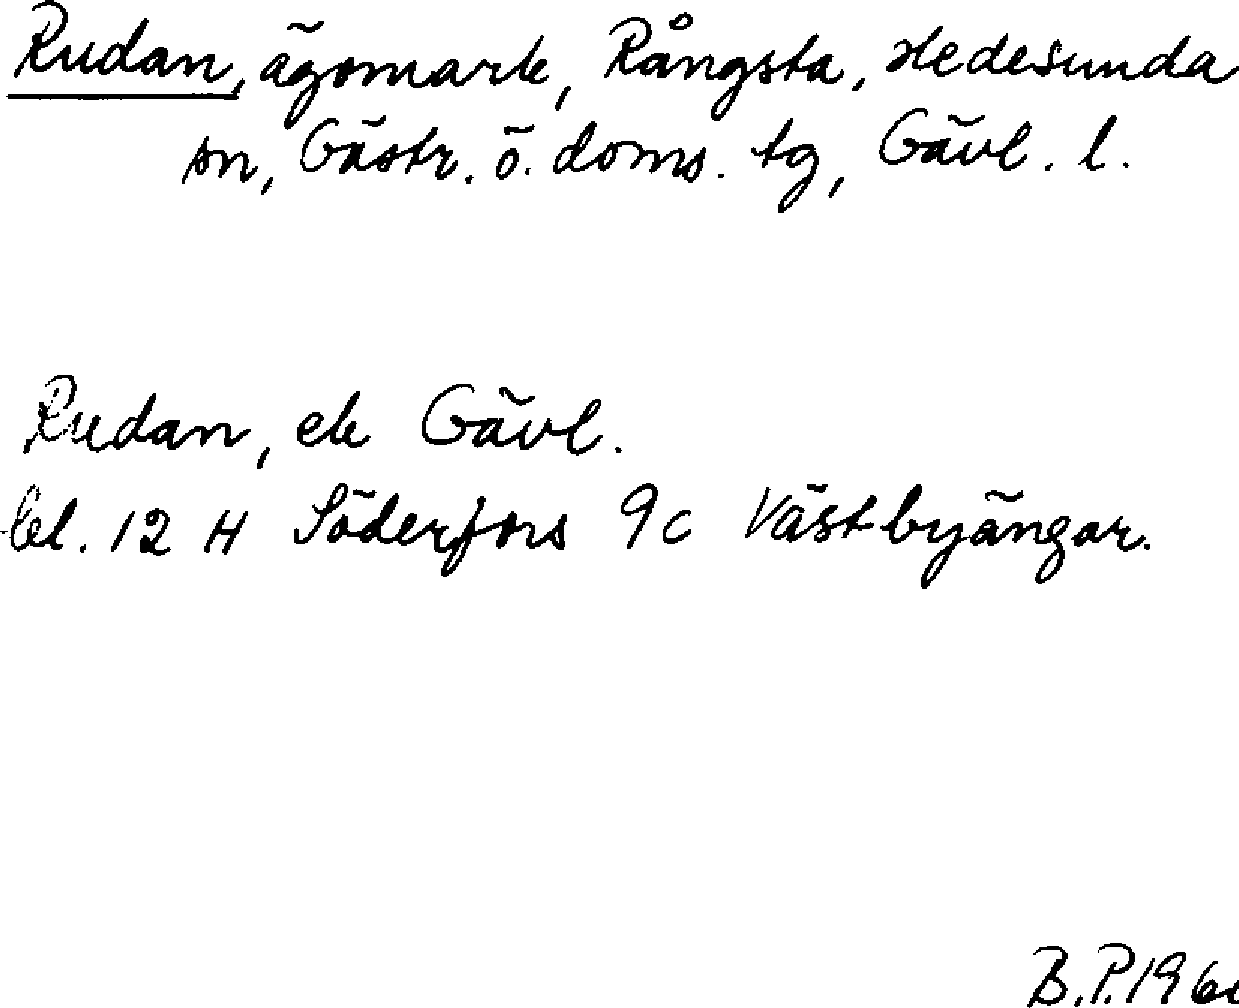 Rudan, ägomark, Rångsta, Hedesunda
sn, Gästr. ö. doms. tg, Gävl. l.
Rudan, ek Gävl.
bl. 12 H Söderfors 9c Västbyängar.
B.P. 196